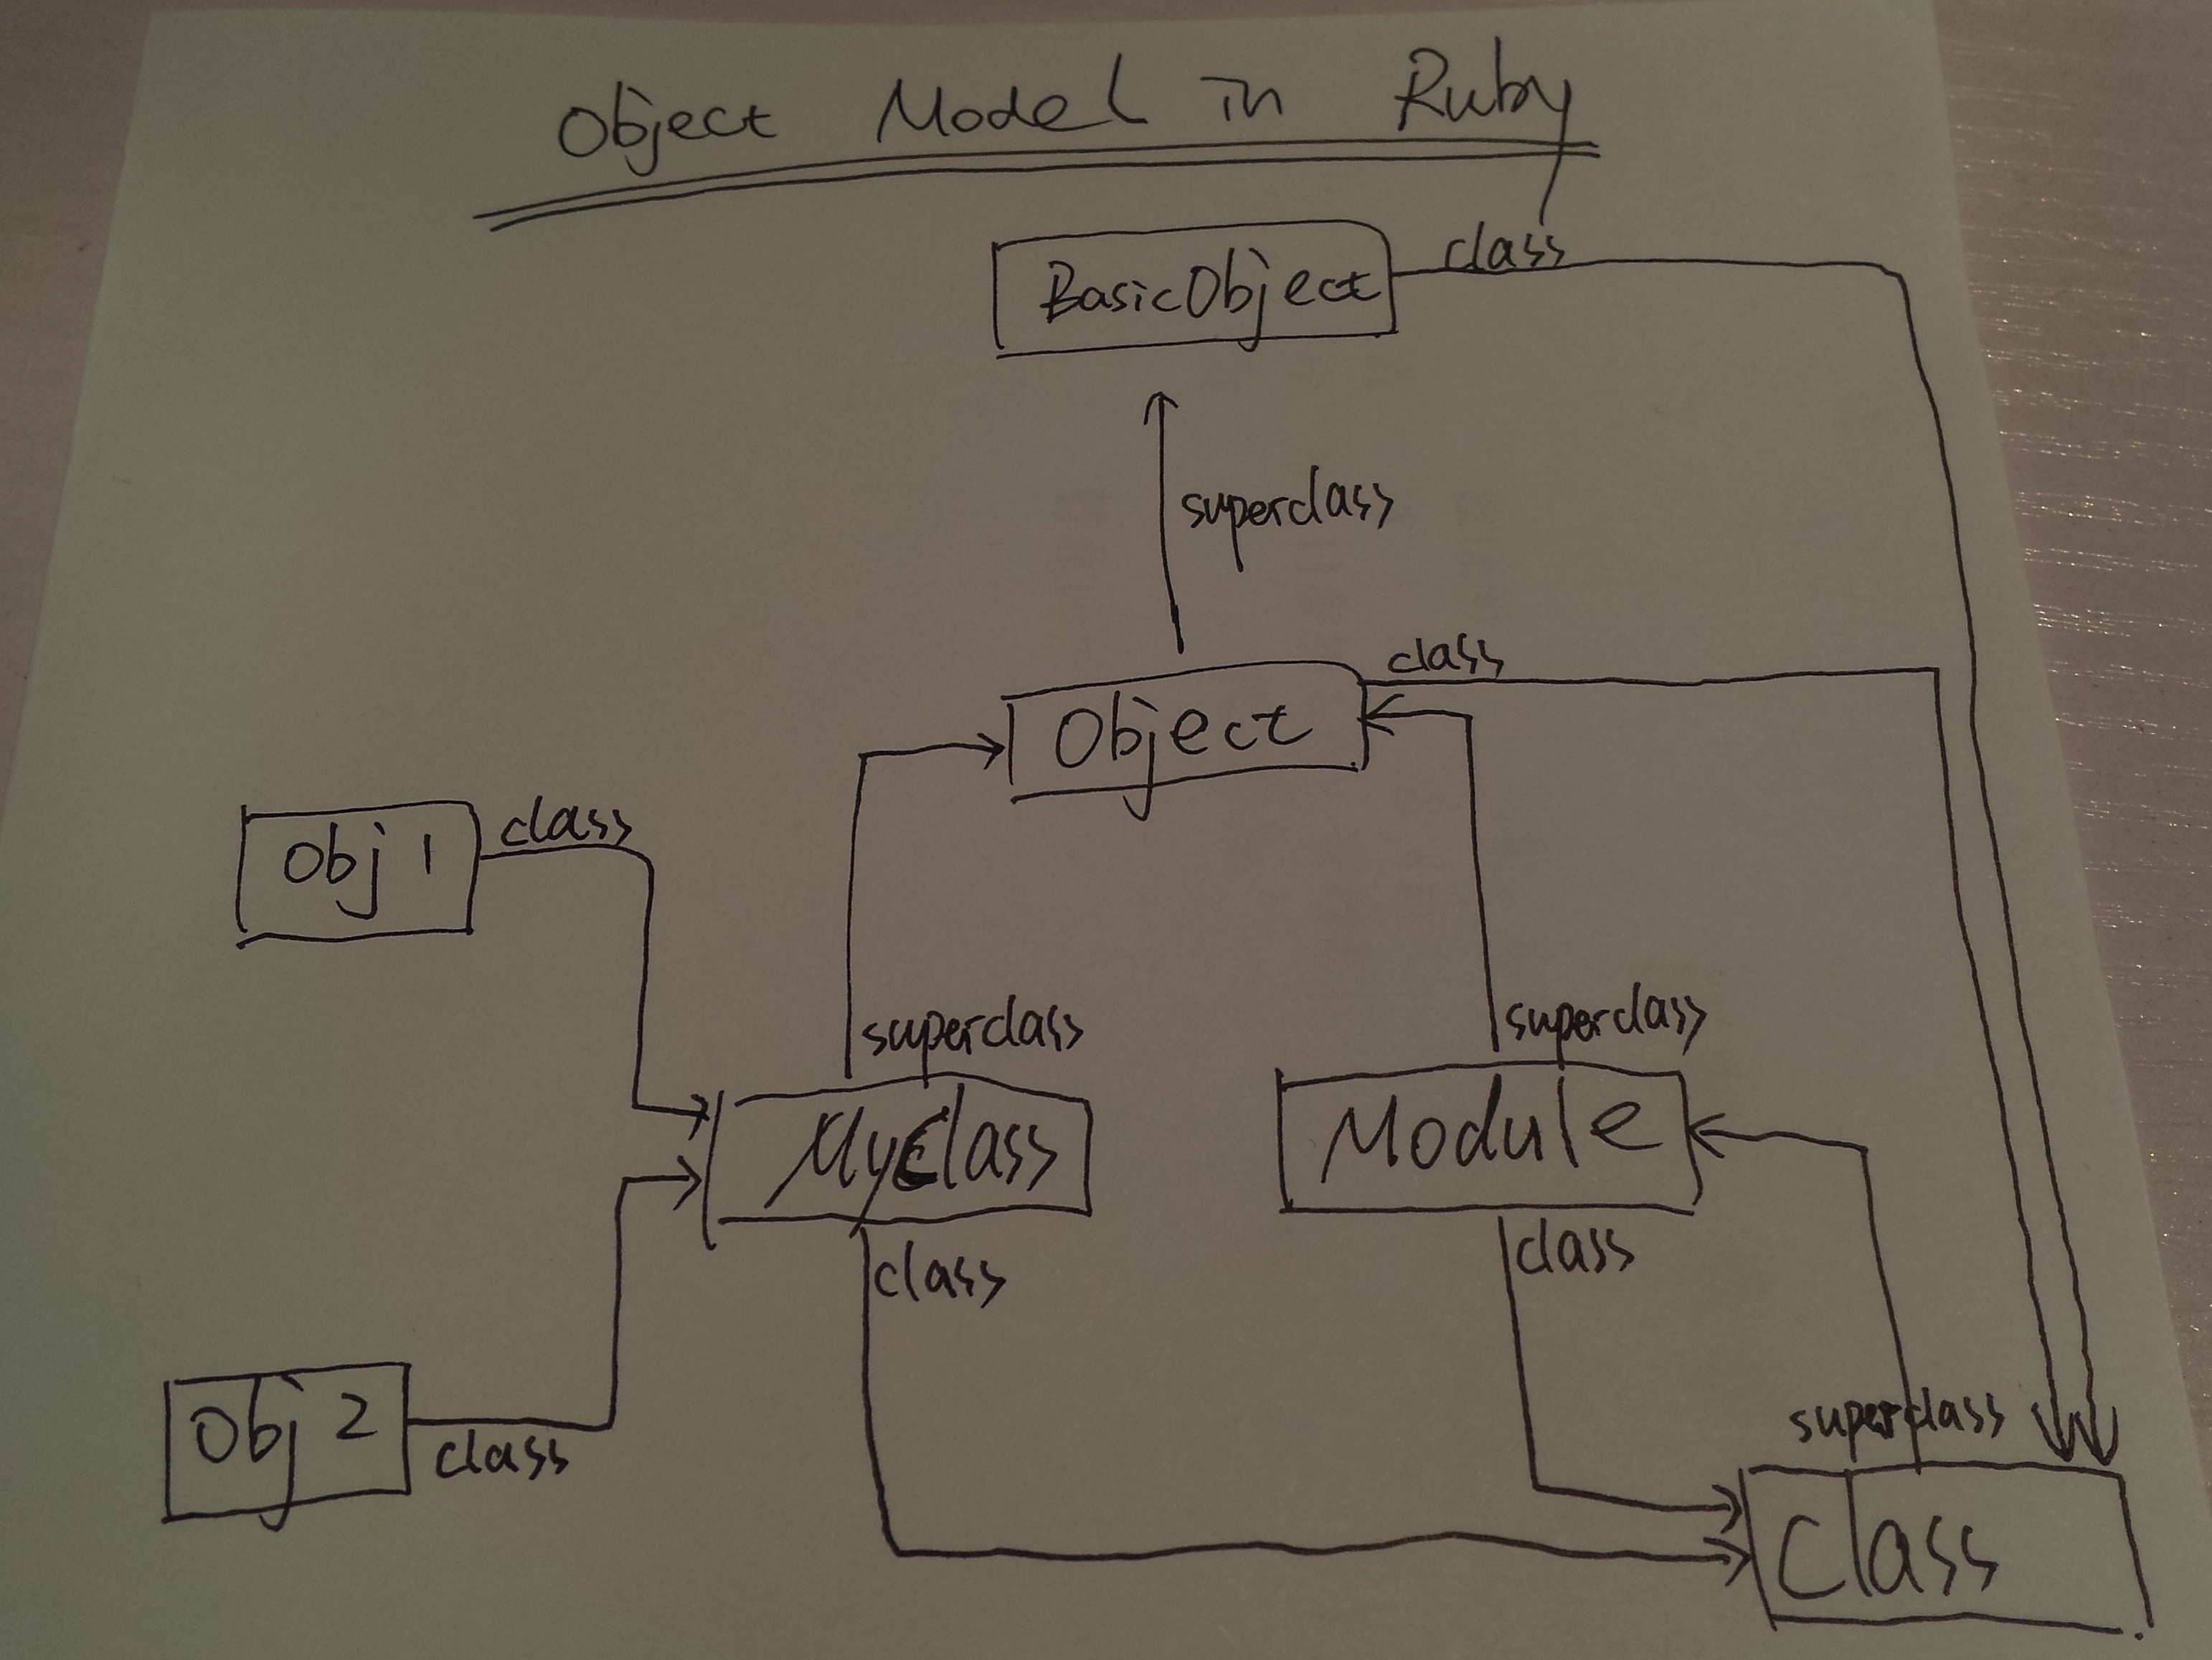 Object Model in Ruby
BasicObject
class
superclass
Object
class
Obj 1
class
superclass
superclass
MyClass
Module
class
class
Obj 2
class
superclass
Class